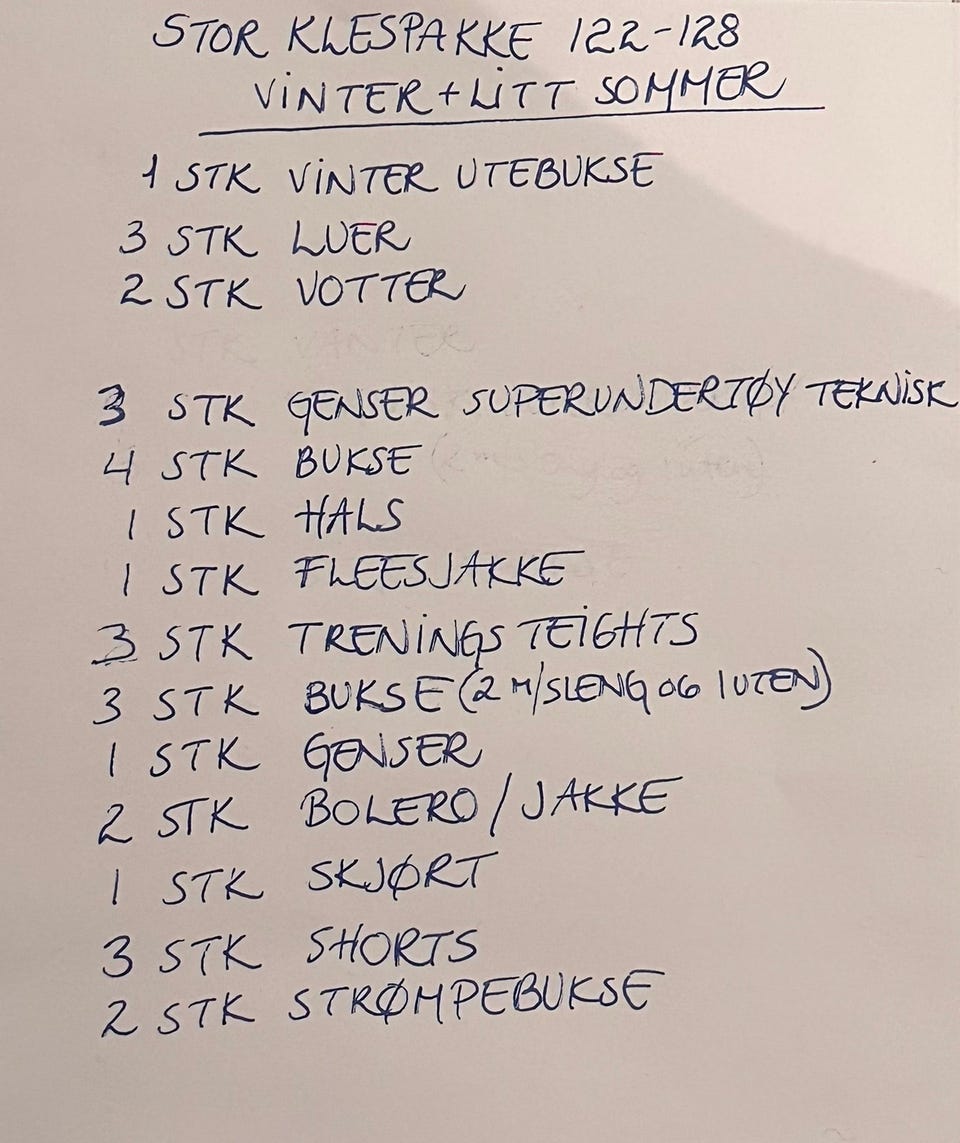 STOR KLESPAKKE 122-128
VINTER + LITT SOMMER
1 STK VINTER UTEBUKSE
3 STK LUER
2 STK VOTTER
3 STK GENSER SUPERUNDERTØY TEKNISK
4 STK BUKSE
1 STK HALS
1 STK FLEESJAKKE
3 STK TRENINGS TEIGHTS
3 STK BUKSE (2 M/SLENG OG 1 UTEN)
1 STK GENSER
2 STK BOLERO / JAKKE
1 STK SKJØRT
3 STK SHORTS
2 STK STRØMPEBUKSE